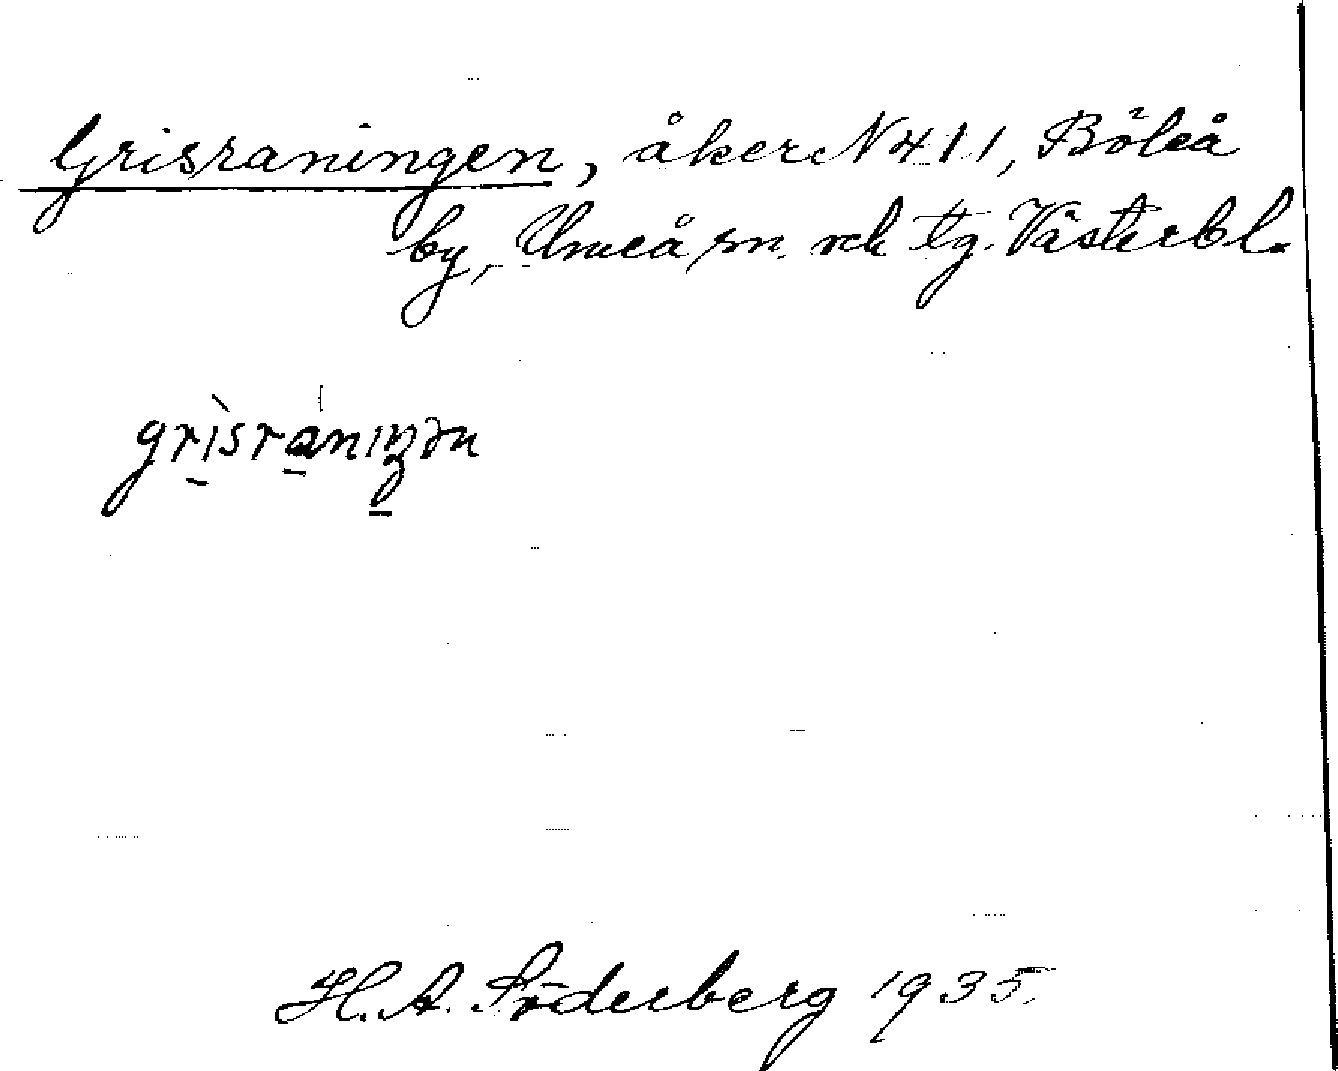 Grisraningen, åker N 411, Böleå
by, Umeå sn. och tg. Västerbl.
grìsránıŋən
H. A. Söderberg 1935.